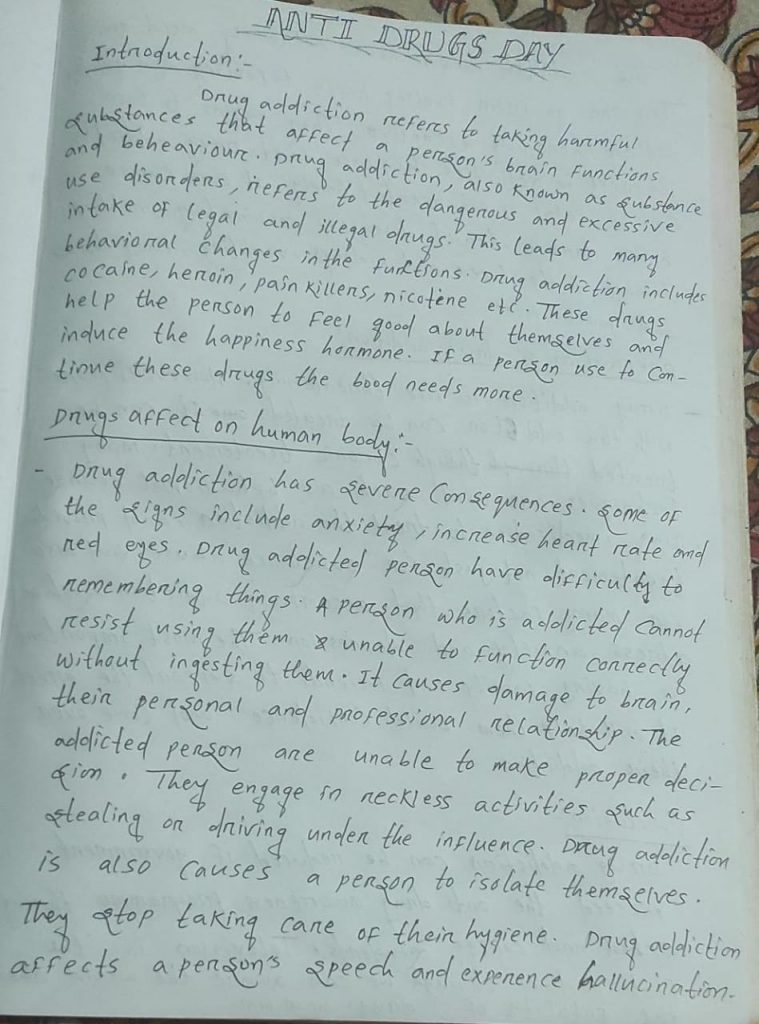 ANTI DRUGS DAY
Introduction:-
Drug addiction refers to taking harmful
substances that affect a person's brain functions
and beheaviour. Drug addiction, also known as substance
use disorders, refers to the dangerous and excessive
intake of legal and illegal drugs. This leads to many
behavioral changes in the functions. Drug addiction includes
cocaine, heroin, pain killers, nicotene etc. These drugs
help the person to feel good about themselves and
induce the happiness hormone. If a person use to con-
tinue these drugs the bood needs more.
Drugs affect on human body:-
- Drug addiction has severe Consequences. Some of
the signs include anxiety, increase heart rate and
red eyes. Drug addicted person have difficulty to
remembering things. A person who is addicted cannot
resist using them & unable to function correctly
without ingesting them. It causes damage to brain,
their personal and professional relationship. The
addicted person are unable to make proper deci-
sion. They engage in reckless activities such as
stealing or driving under the influence. Drug addiction
is also causes a person to isolate themselves.
They stop taking care of their hygiene. Drug addiction
affects a person's speech and experence hallucination.